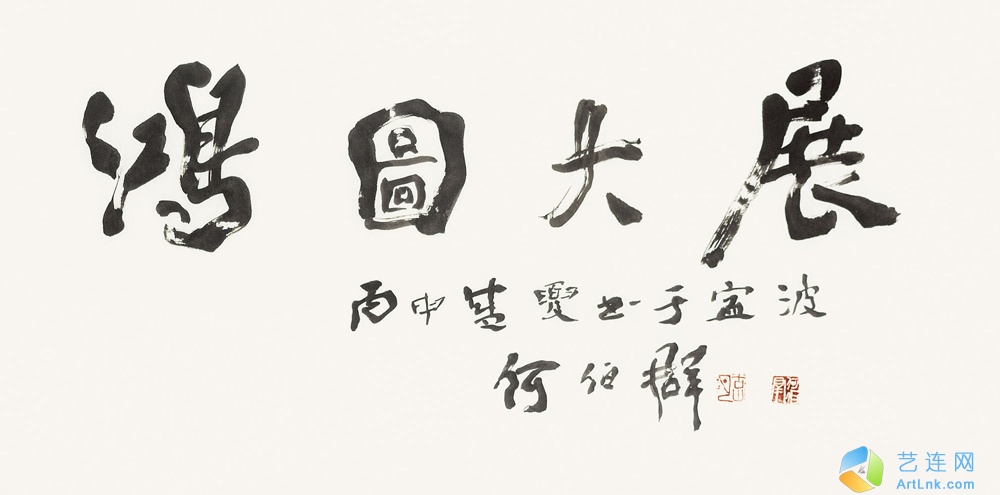 鴻圖大展
丙申盛夏书于寍波
何伯群
艺连网
ArtLnk.com